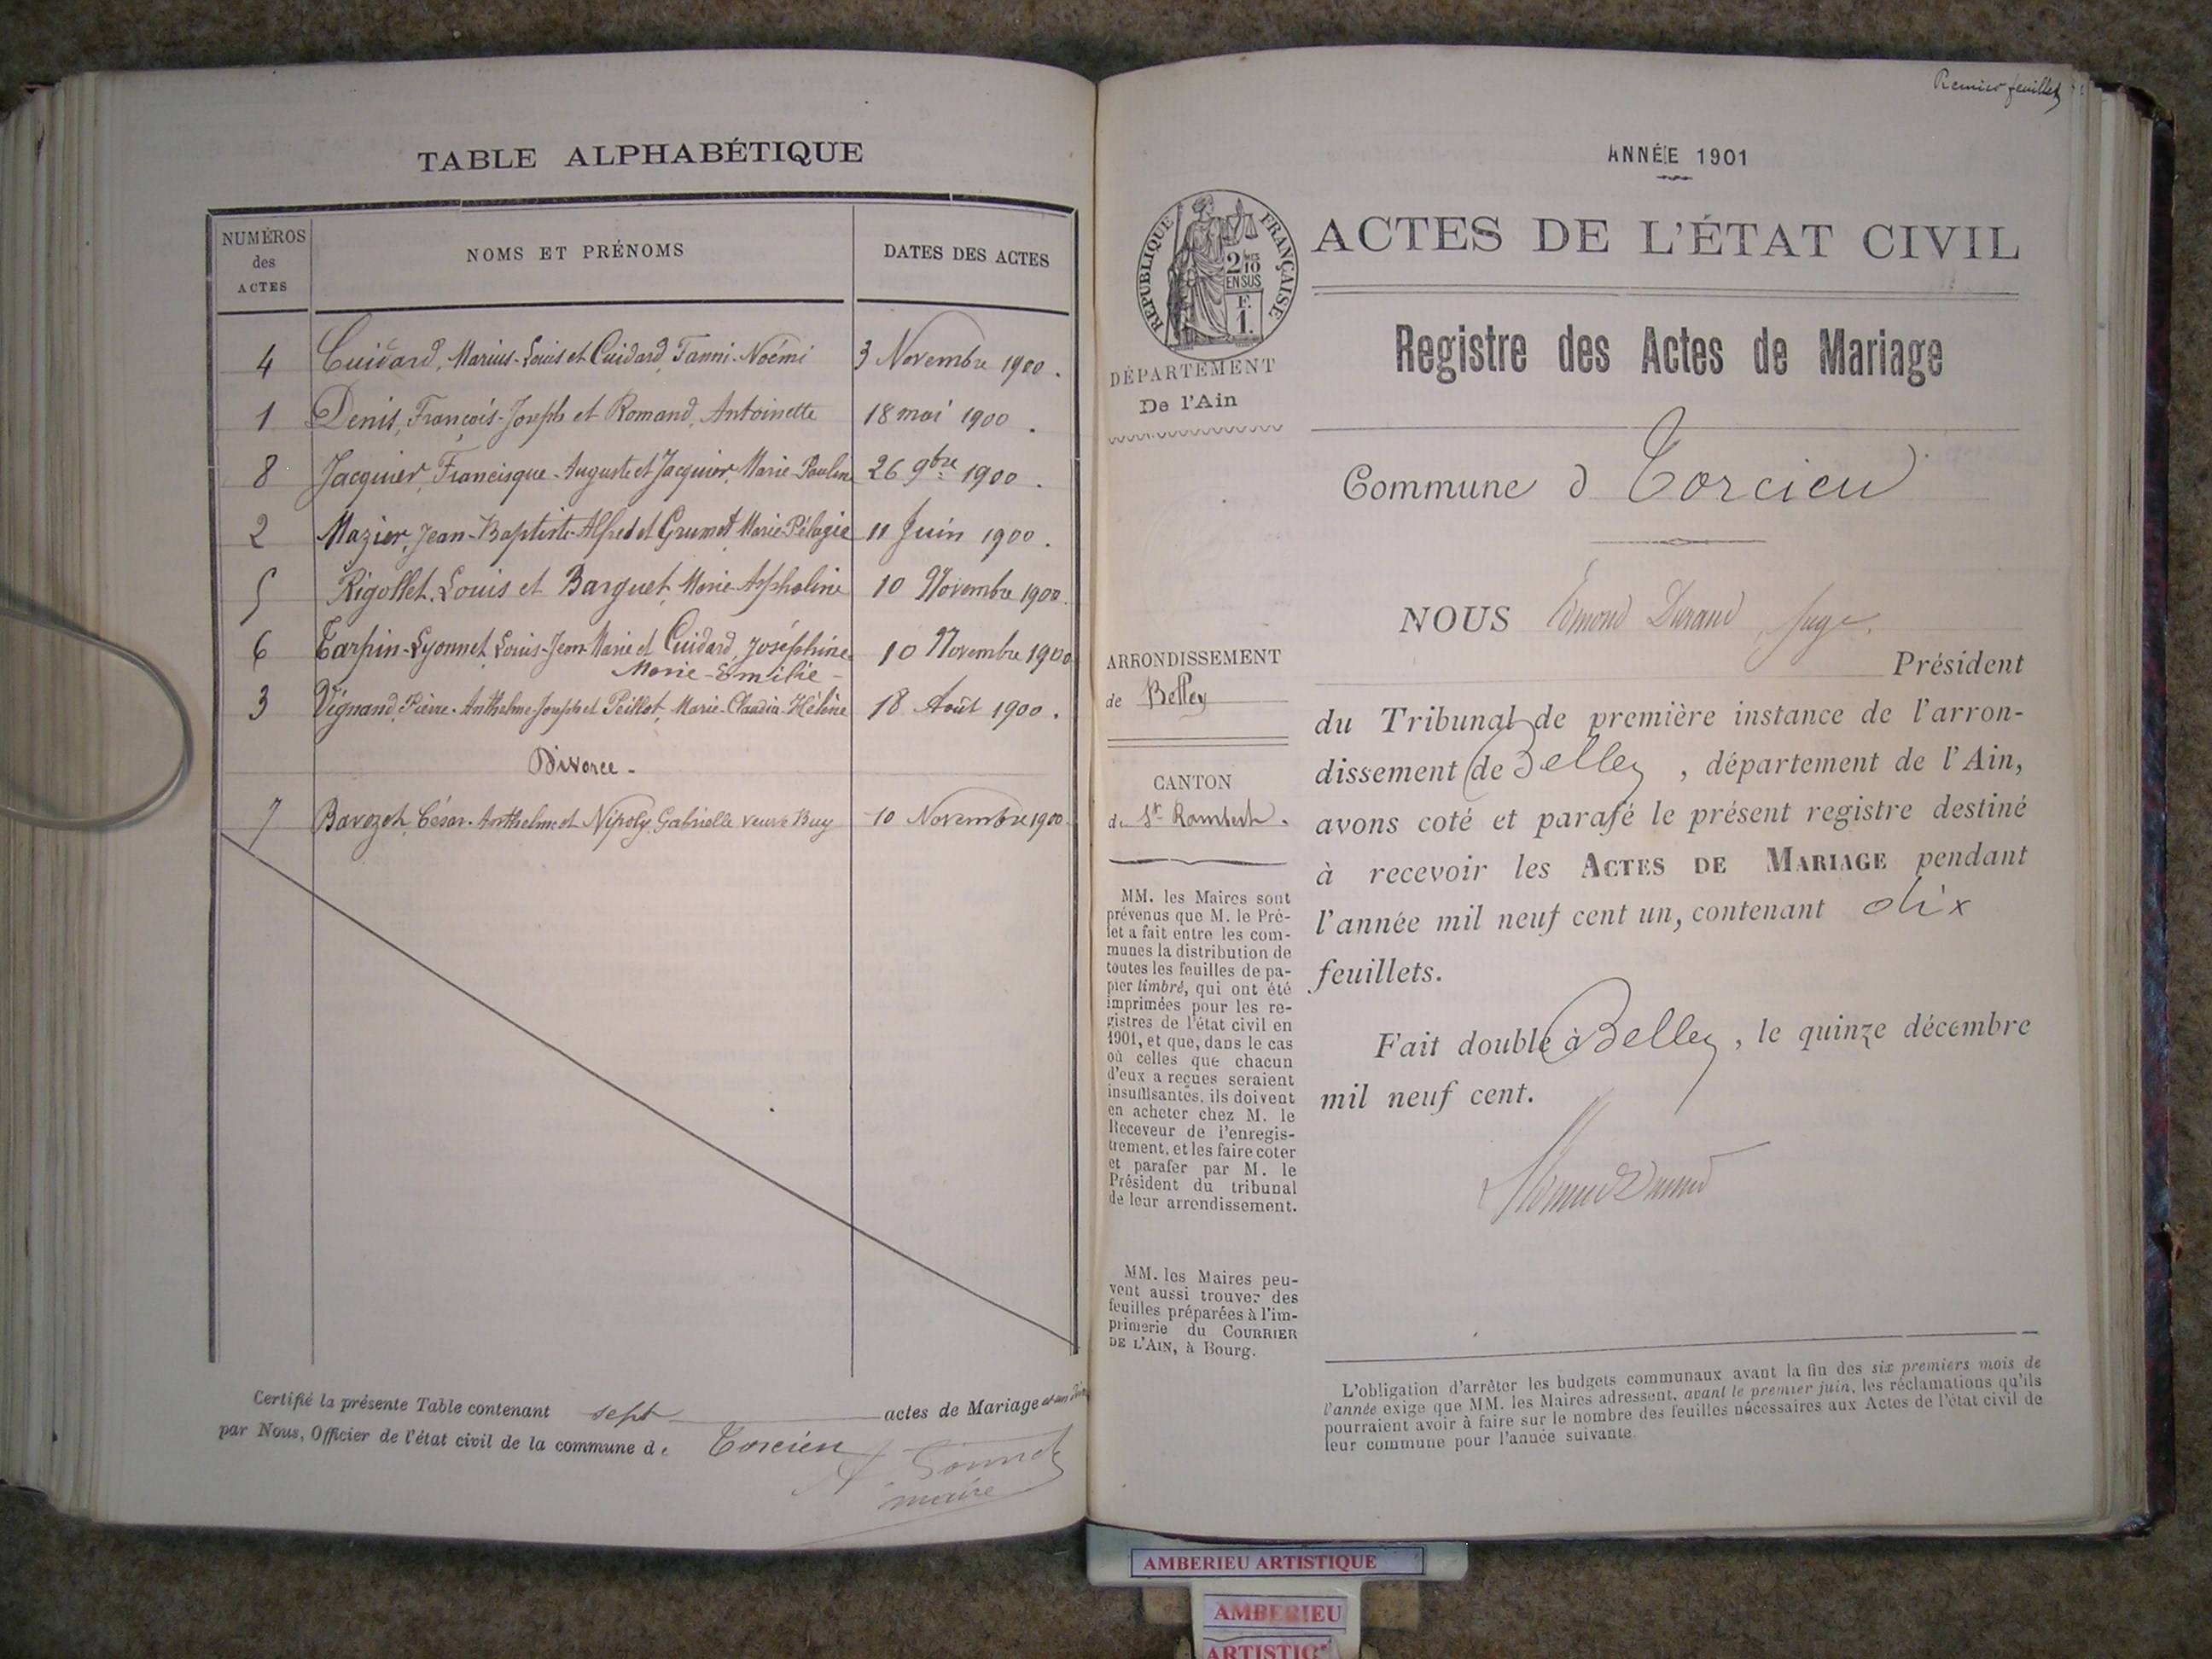 TABLE ALPHABÉTIQUE
NUMÉROS
des
ACTES
NOMS ET PRÉNOMS
DATES DES ACTES
4 Cuidard, Marius-Louis et Cuidard, Fanni-Noémi 3 Novembre 1900.
1 Denis, François-Joseph et Romand, Antoinette 18 mai 1900.
8 Jacquier, Francisque-Auguste et Jacquier, Marie-Pauline 26 9bre 1900.
2 Mazier, Jean-Baptiste-Alfred et Grumet Marie-Pélagie 11 Juin 1900.
5 Rigollet, Louis et Barguet, Marie 10 Novembre 1900.
6 Tarpin-Lyonnet, Louis-Jean-Marie et Cuidard, Joséphine 10 Novembre 1900
Marie-Emilie-
3 Vignand, Pierre-Anthelme-Joseph et Peillot, Marie-Claudia-Hélène 18 Août 1900.
Divorce-
7 César-Anthelme et Gabrielle veuve Buy 10 Novembre 1900.
Certifié la présente Table contenant sept actes de Mariage et un
par Nous, Officier de l'état civil de la commune de Torcieu
maire
Premier feuillet
ANNÉE 1901
RÉPUBLIQUE FRANÇAISE
2/10
EN SUS
F.
1.
ACTES DE L'ÉTAT CIVIL
Registre des Actes de Mariage
DÉPARTEMENT
De l'Ain
Commune d Torcieu
NOUS Edmond Durand, Juge,
Président
du Tribunal de première instance de l'arron-
dissement de Belley, département de l'Ain,
avons coté et parafé le présent registre destiné
à recevoir les ACTES DE MARIAGE pendant
l'année mil neuf cent un, contenant dix
feuillets.
Fait double à Belley, le quinze décembre
mil neuf cent.
Edmond Durand
ARRONDISSEMENT
de Belley
CANTON
de St Rambert.
MM. les Maires sont
prévenus que M. le Pré-
fet a fait entre les com-
munes la distribution de
toutes les feuilles de pa-
pier timbré, qui ont été
imprimées pour les re-
gistres de l'état civil en
1901, et que, dans le cas
où celles que chacun
d'eux a reçues seraient
insuffisantes, ils doivent
en acheter chez M. le
Receveur de l'enregis-
trement, et les faire coter
et parafer par M. le
Président du tribunal
de leur arrondissement.
MM. les Maires peu-
vent aussi trouver des
feuilles préparées à l'im-
primerie du COURRIER
DE L'AIN, à Bourg.
L'obligation d'arrêter les budgets communaux avant la fin des six premiers mois de
l'année exige que MM. les Maires adressent, avant le premier juin, les réclamations qu'ils
pourraient avoir à faire sur le nombre des feuilles nécessaires aux Actes de l'état civil de
leur commune pour l'année suivante.
AMBERIEU ARTISTIQUE
AMBERIEU
ARTISTIQ